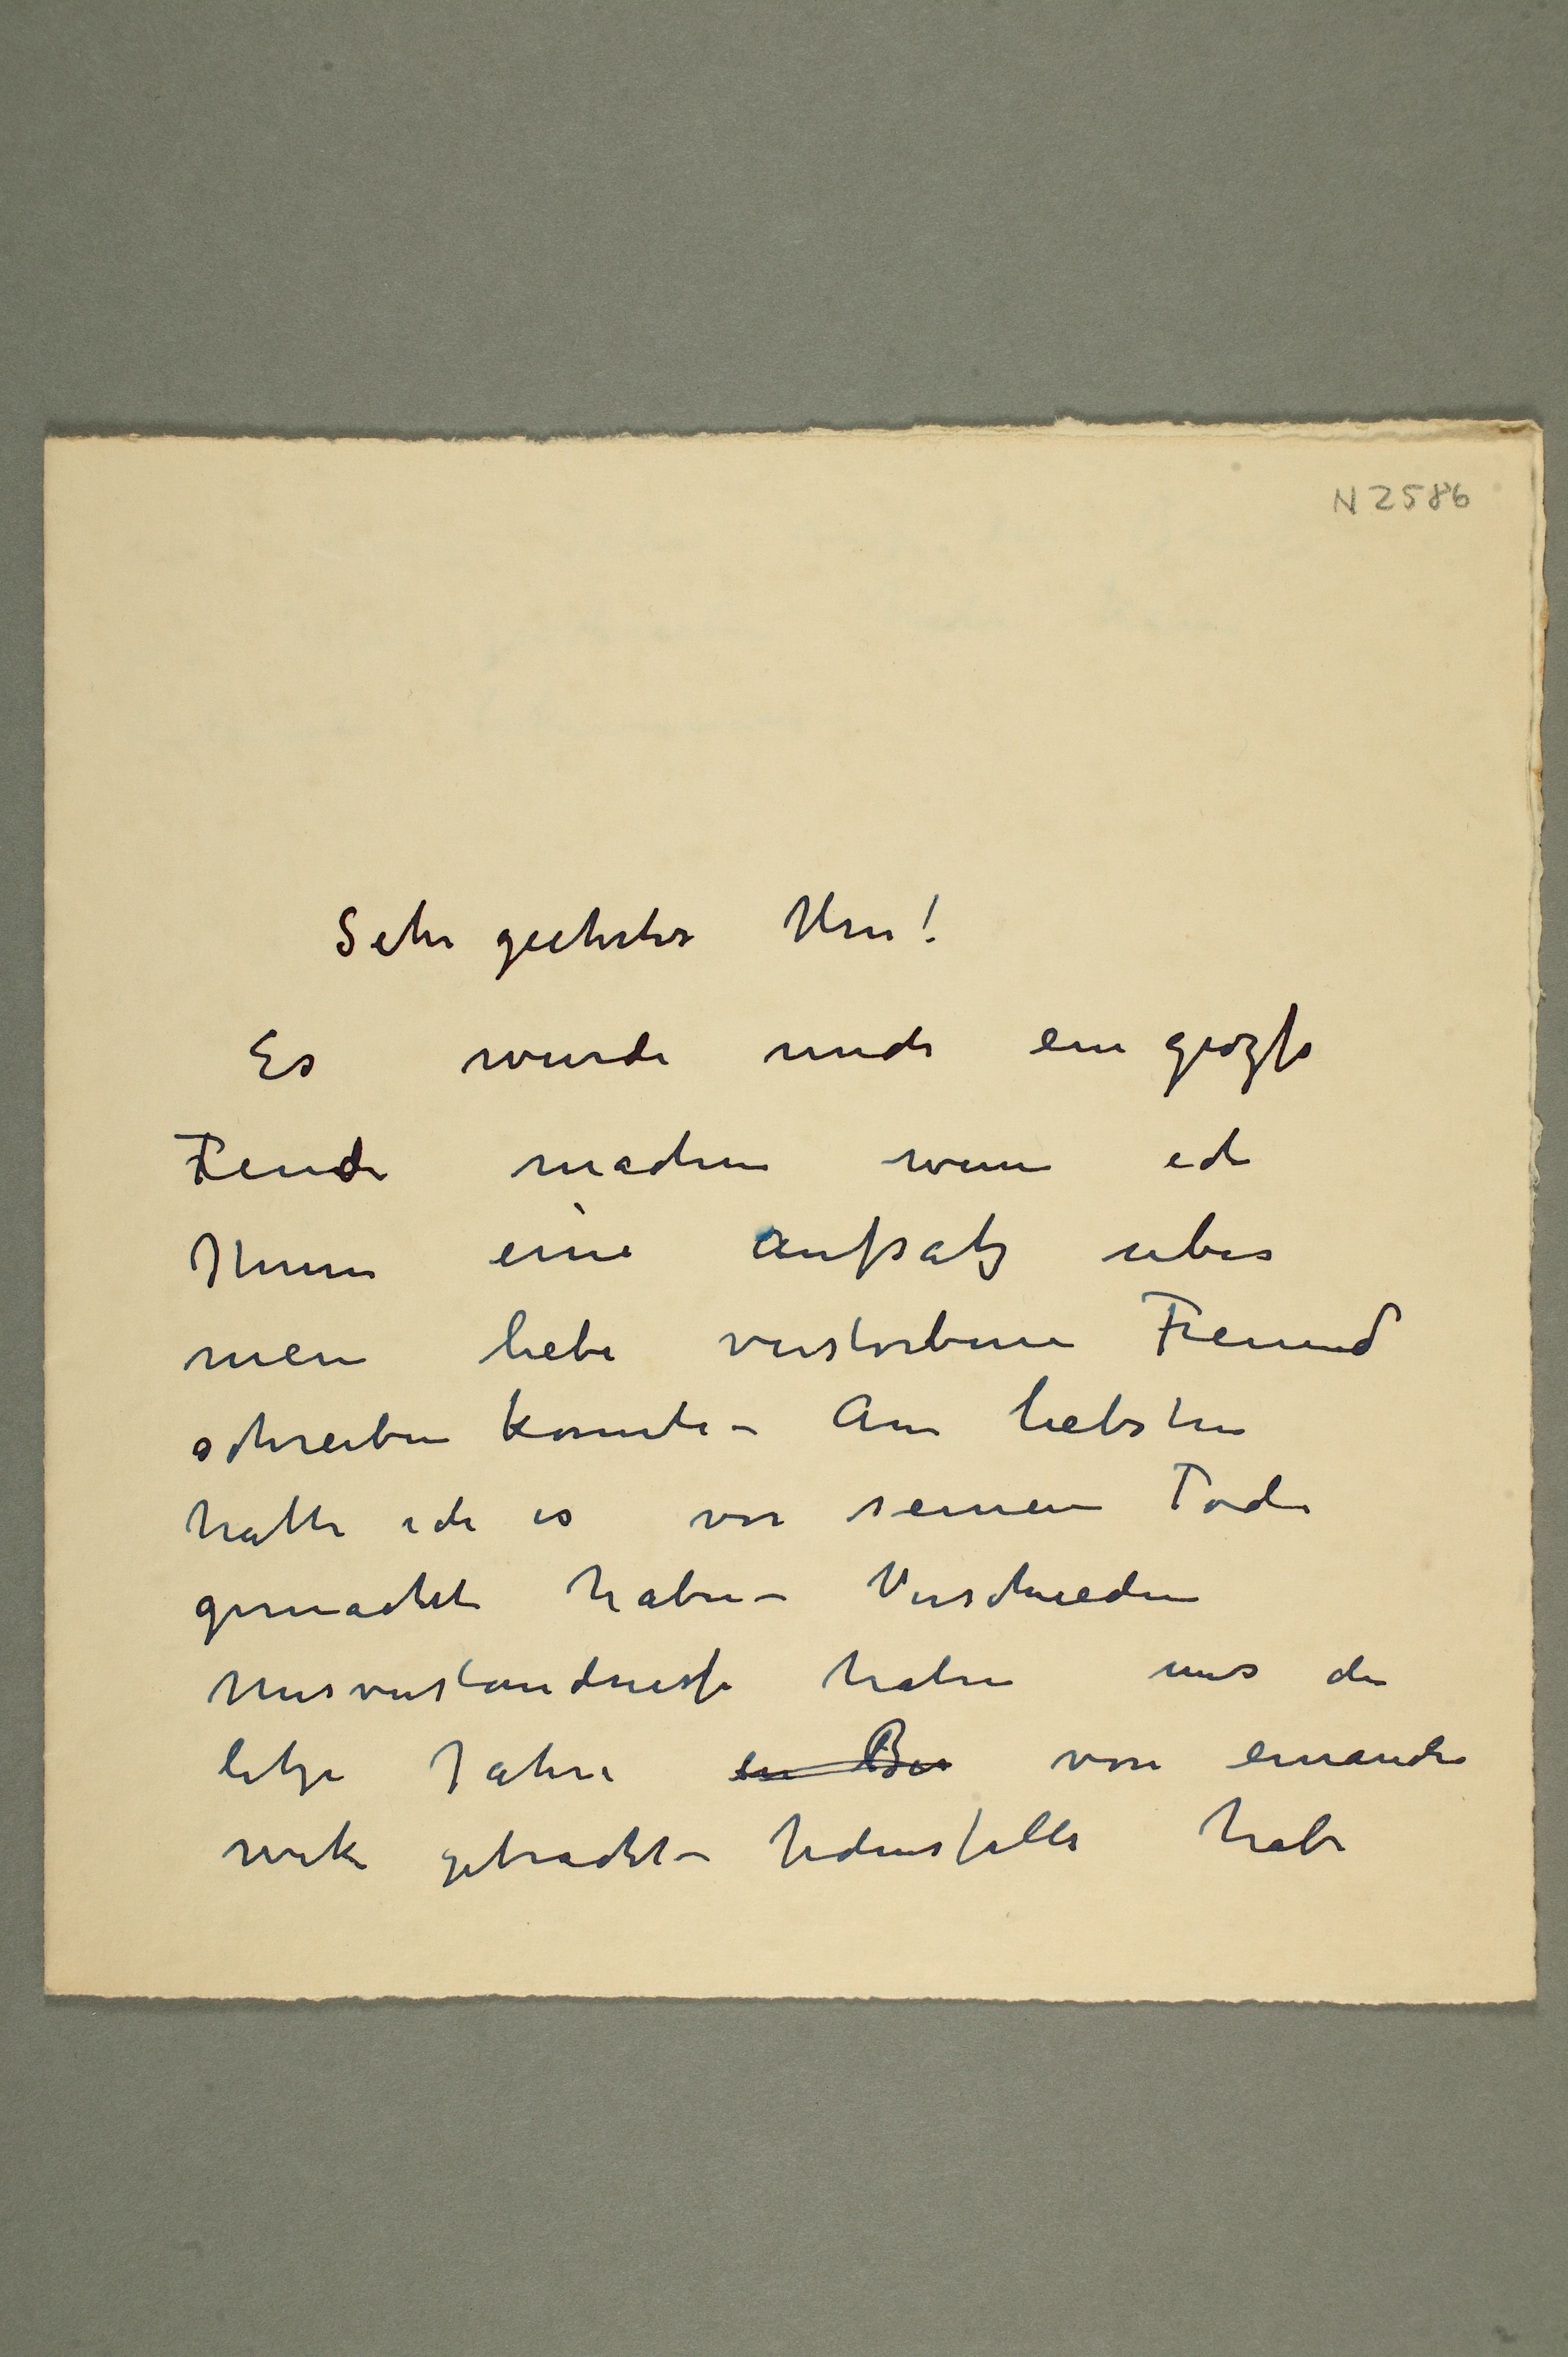 N 2586
Sehr geehrter Herr!
Es wurde mich ein grozse
Freude machen wenn ich
Ihnen eine Aufsatz uber
mein liebe verstorbene Freund
schreiben konnte – Am liebsten
hatte ich es vor seinem Tode
gemacht haben – Verschiedene
Misverstandnisse haben uns die
letze Jahre en Be von einander
weke gebracht – Jedensfalls habe